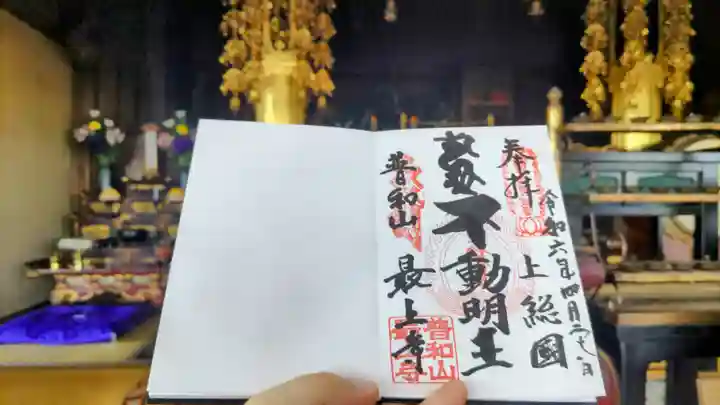 奉拝
令和六年四月二八日
上総國
不動明王
普和山
最上寺
普和山